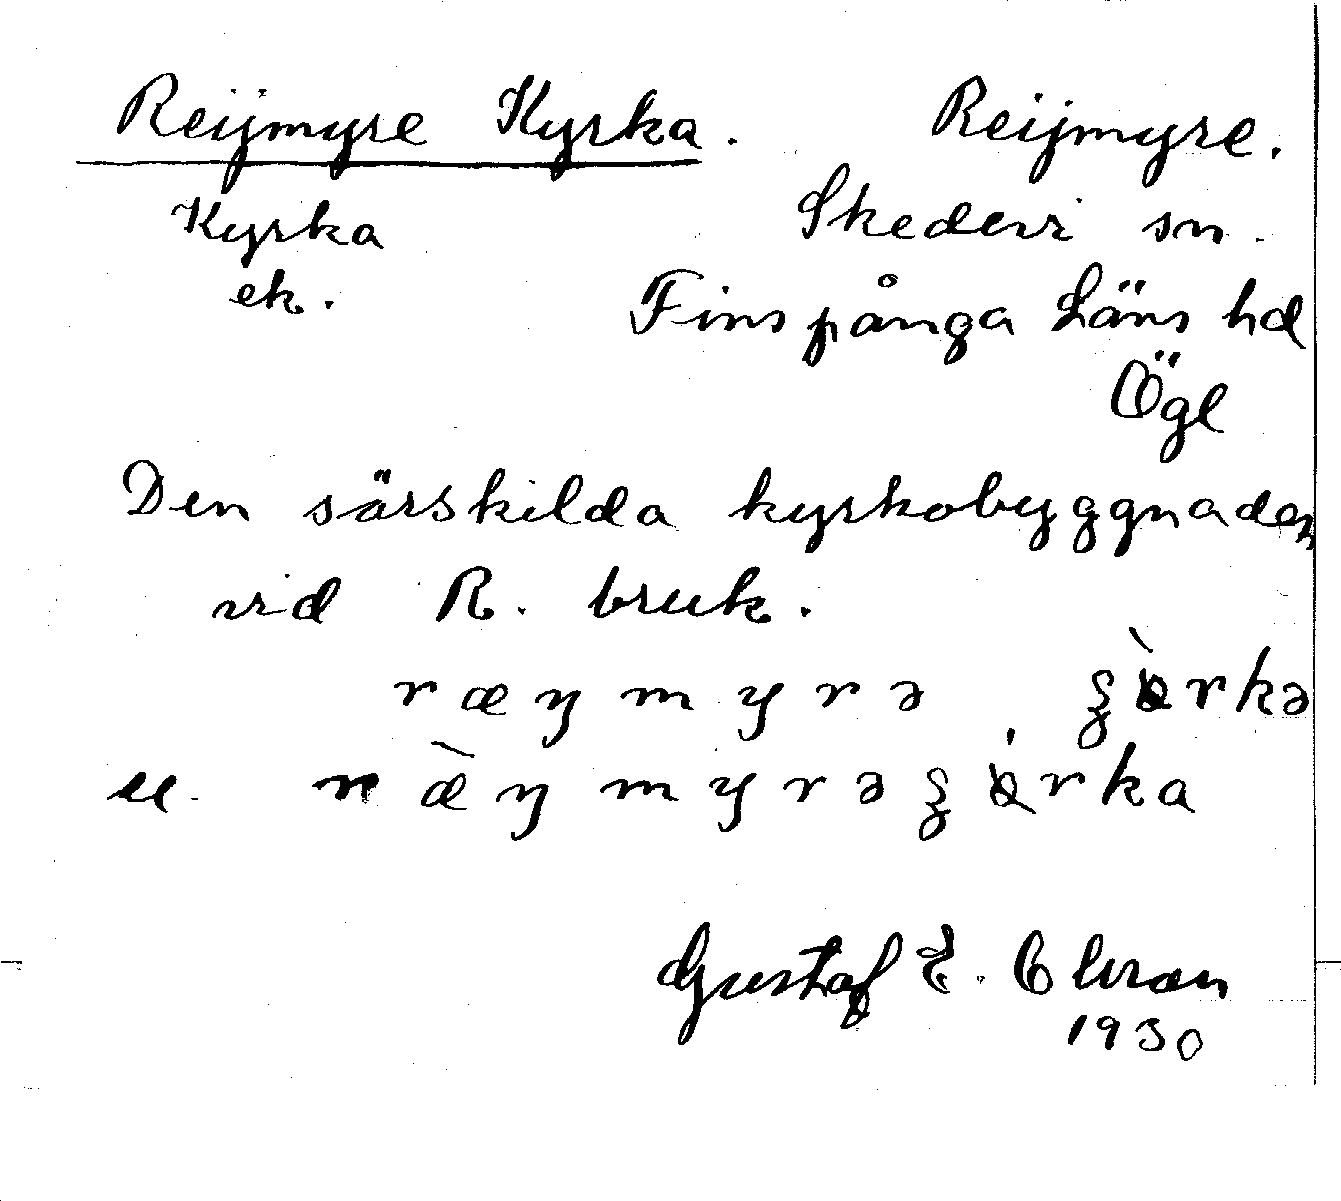 Reijmyre Kyrka. Reijmyre.
Kyrka Skedevi sn.
ek. Finspånga Läns hd
Ögl
Den särskilda kyrkobyggnaden
vid R. bruk.
ræymyrə
u. ræymyrə
Gustaf E.
1930